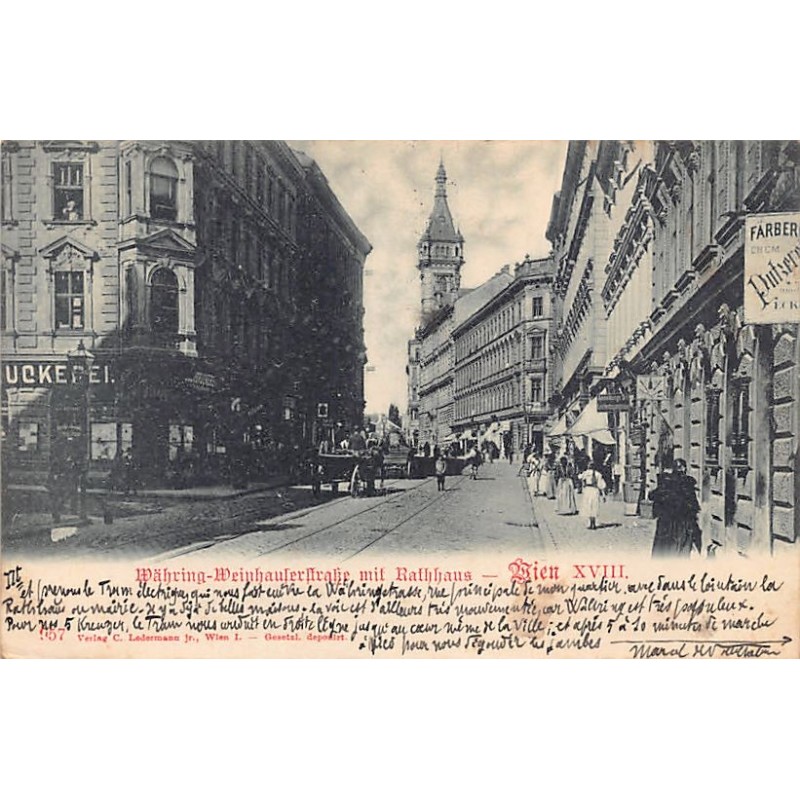 UCKEREI.
FÄRBER
CHEM.
Putzerei
ECK
Währing-Weinhauserstraße mit Rathhaus — Wien XVIII.
et prenons le Tram électrique, qui nous fait suivre la Währingstrasse, rue principale de mon quartier, avec dans le lointain la
Rathhaus ou mairie. Il y a de belles maisons. La vie est d'ailleurs très mouvementée, car Währing est très populeux.
Pour nos 5 Kreuzer, le Tram nous conduit en droite ligne jusqu'au cœur même de la Ville; et après 5 à 10 minutes de marche
à pied pour nous dégourdir les jambes
957 Verlag C. Ledermann jr., Wien I. — Gesetzl. deponirt.
Marcel